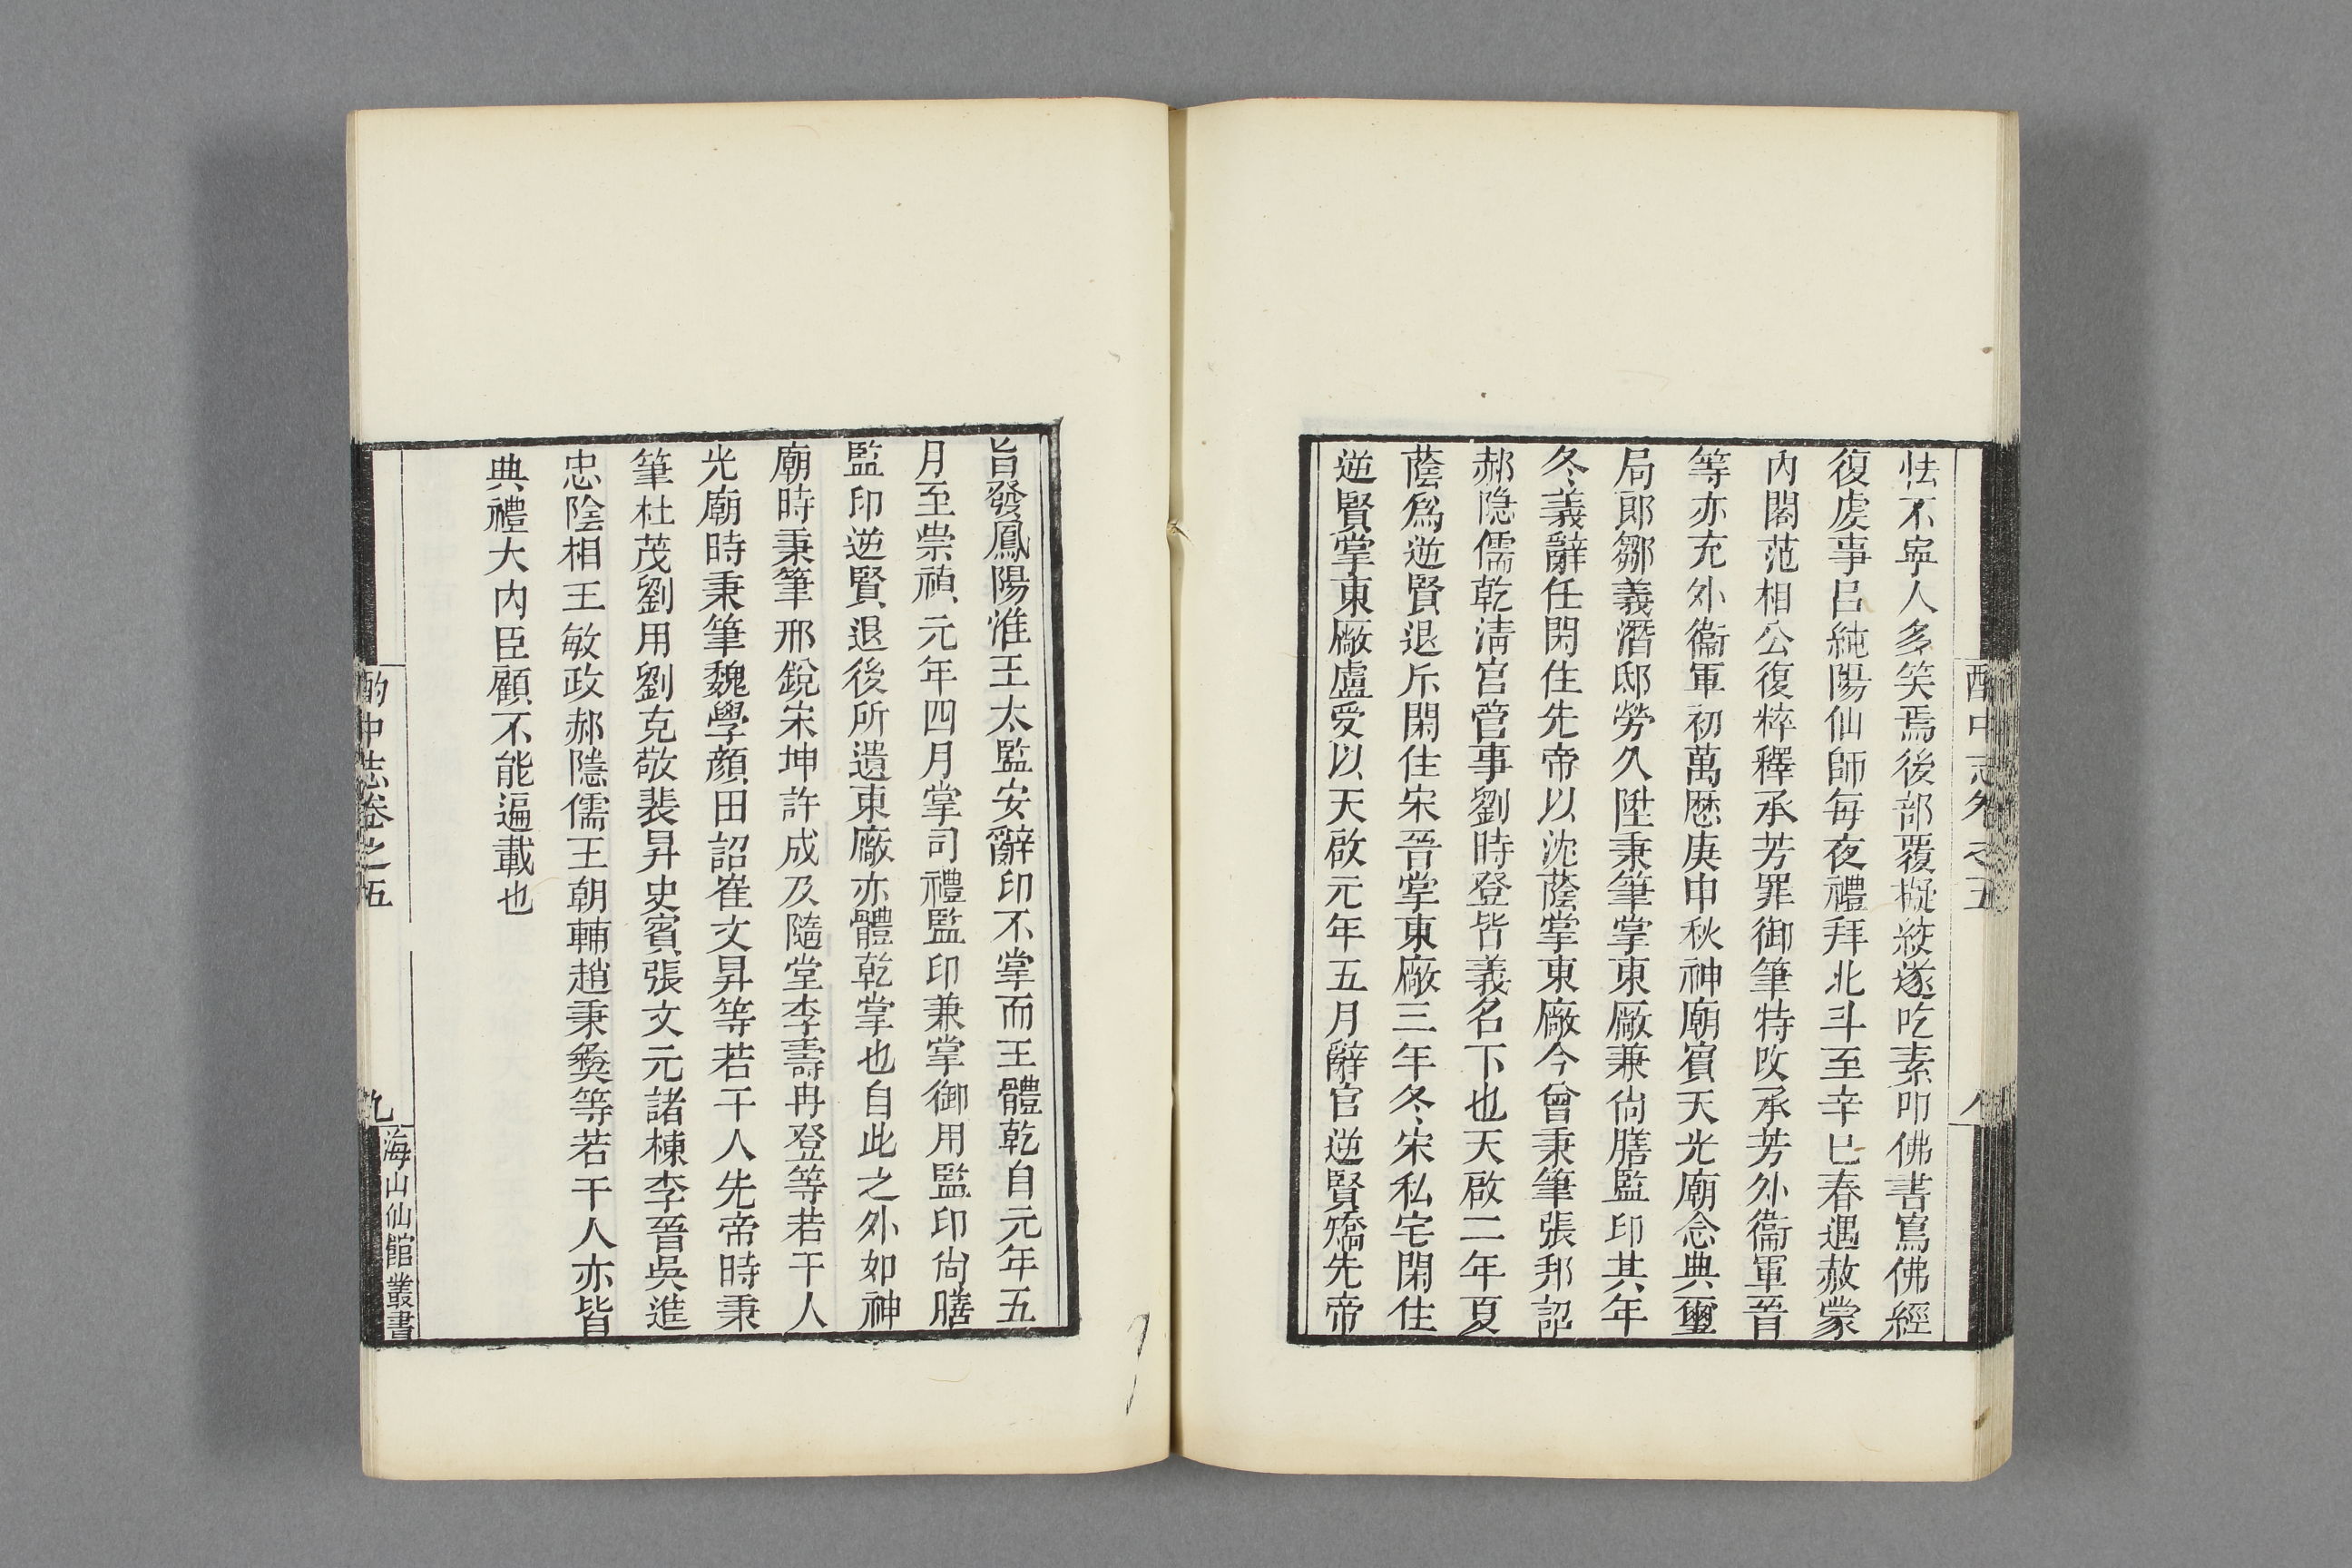 酌中志卷之五
八
怯不寧人多笑焉後部覆擬絞遂吃素卯佛書寫佛經
復虔事呂純陽仙師每夜禮拜北斗至辛巳春遇赦蒙
內閣范相公復粹釋承芳罪御筆特改承芳外衞軍晉
等亦充外衞軍初萬厯庚申秋神廟賓天光廟念典璽
局郎鄒義潛邸勞久陞秉筆掌東廠兼尙膳監印其年
冬義辭任閑住先帝以沈蔭掌東廠今曾秉筆張邦詔
郝隱儒乾淸宮管事劉時登皆義名下也天啟二年夏
蔭爲逆賢退斥閑住宋晉掌東廠三年冬宋私宅閑住
逆賢掌東廠盧受以天啟元年五月辭官逆賢矯先帝
旨發鳳陽惟王太監安辭印不掌而王體乾自元年五
月至崇禎元年四月掌司禮監印兼掌御用監印尙膳
監印逆賢退後所遺東廠亦體乾掌也自此之外如神
廟時秉筆邢銳宋坤許成及隨堂李壽冉登等若干人
光廟時秉筆魏學顏田詔崔文昇等若干人先帝時秉
筆杜茂劉用劉克敬裴昇史賓張文元諸棟李晉吳進
忠陰相王敏政郝隱儒王朝輔趙秉彝等若干人亦皆
典禮大內臣顧不能遍載也
酌中志卷之五
九
海山仙館叢書